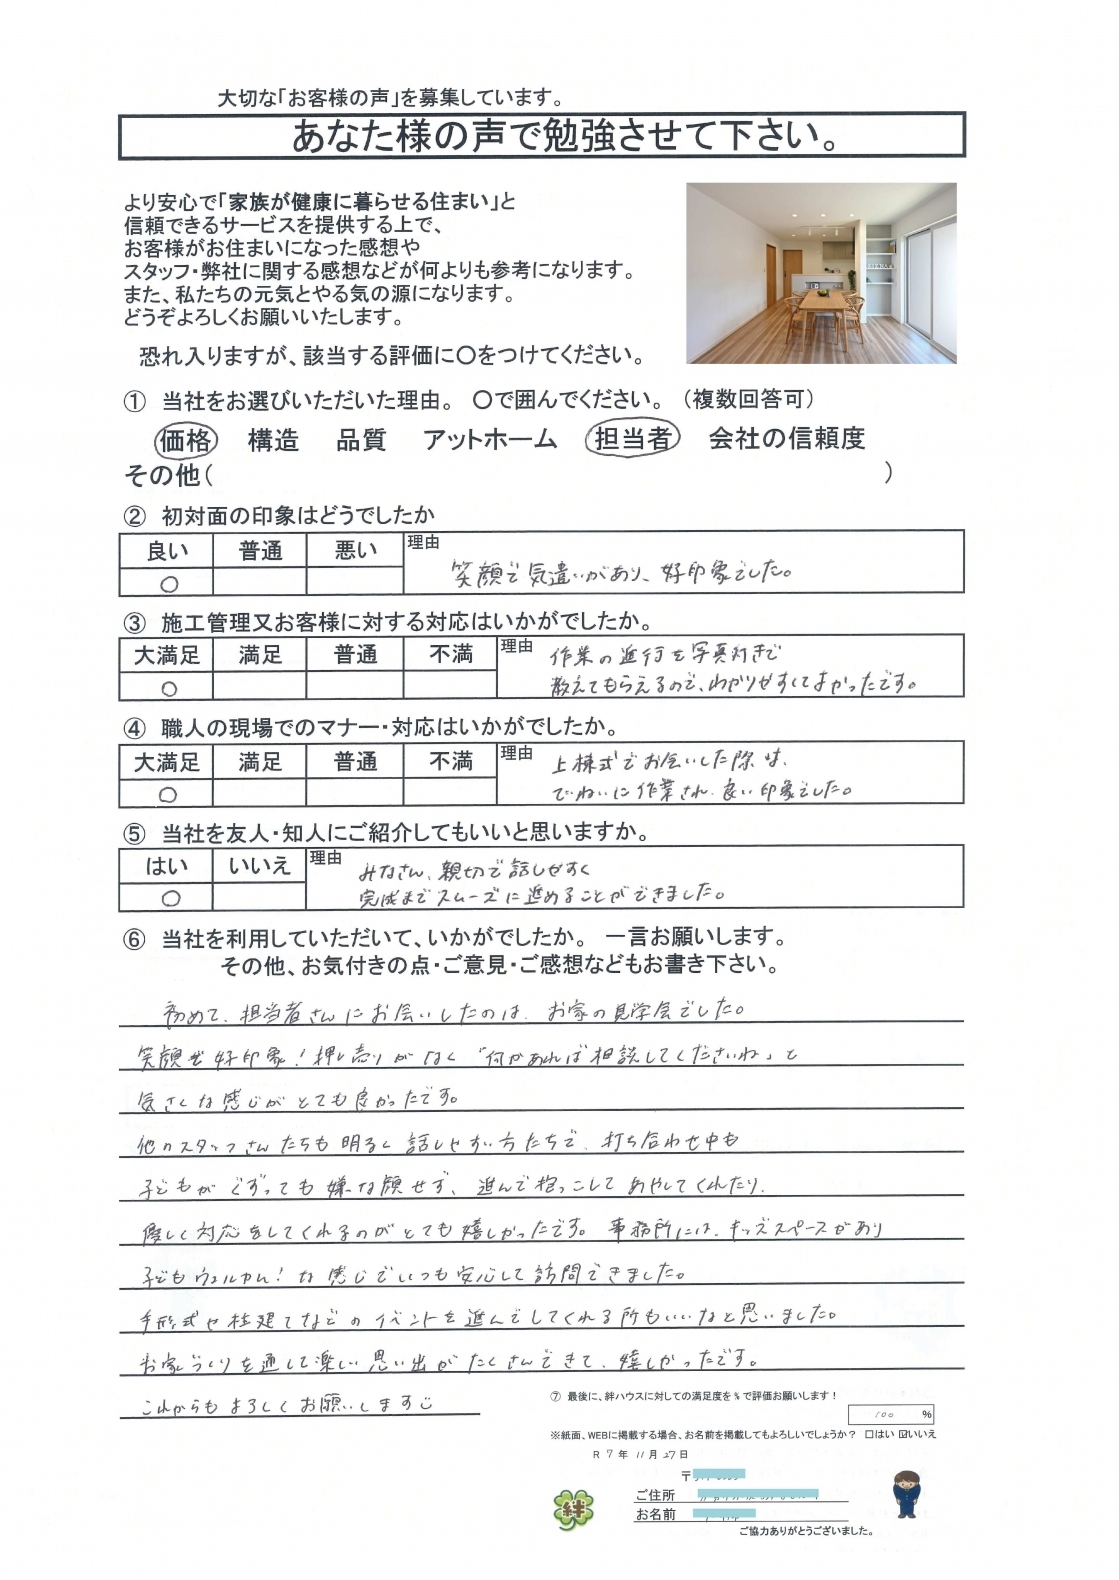 大切な「お客様の声」を募集しています。
あなた様の声で勉強させて下さい。
より安心で「家族が健康に暮らせる住まい」と
信頼できるサービスを提供する上で、
お客様がお住まいになった感想や
スタッフ・弊社に関する感想などが何よりも参考になります。
また、私たちの元気とやる気の源になります。
どうぞよろしくお願いいたします。
恐れ入りますが、該当する評価に〇をつけてください。
① 当社をお選びいただいた理由。 〇で囲んでください。（複数回答可）
価格 構造 品質 アットホーム 担当者 会社の信頼度
その他（ ）
② 初対面の印象はどうでしたか
良い 普通 悪い 理由
○ 笑顔で気遣いがあり、好印象でした。
③ 施工管理又お客様に対する対応はいかがでしたか。
大満足 満足 普通 不満 理由 作業の進行を写真付きで
○ 教えてもらえるので、わかりやすくてよかったです。
④ 職人の現場でのマナー・対応はいかがでしたか。
大満足 満足 普通 不満 理由 上棟式でお会いした際は、
○ ていねいに作業され、良い印象でした。
⑤ 当社を友人・知人にご紹介してもいいと思いますか。
はい いいえ 理由 みなさん、親切で話しやすく
○ 完成までスムーズに進めることができました。
⑥ 当社を利用していただいて、いかがでしたか。 一言お願いします。
その他、お気付きの点・ご意見・ご感想などもお書き下さい。
初めて、担当者さんにお会いしたのは、お家の見学会でした。
笑顔が好印象！押し売りがなく「何かあれば相談してくださいね」と
気さくな感じがとても良かったです。
他のスタッフさんたちも明るく話しやすい方たちで、打ち合わせ中も
子どもがぐずっても嫌な顔せず、進んで抱っこしてあやしてくれたり、
優しく対応をしてくれるのがとても嬉しかったです。事務所には、キッズスペースがあり
子どもウェルカム！な感じでいつも安心して訪問できました。
手形式や柱建てなどのイベントを進んでしてくれる所もいいなと思いました。
お家づくりを通して楽しい思い出がたくさんできて、嬉しかったです。
これからもよろしくお願いします
⑦ 最後に、絆ハウスに対しての満足度を％で評価お願いします！
100 %
※紙面、WEBに掲載する場合、お名前を掲載してもよろしいでしょうか？ □はい ☑いいえ
R 7 年 11 月 27 日
〒
ご住所
お名前
絆
ご協力ありがとうございました。